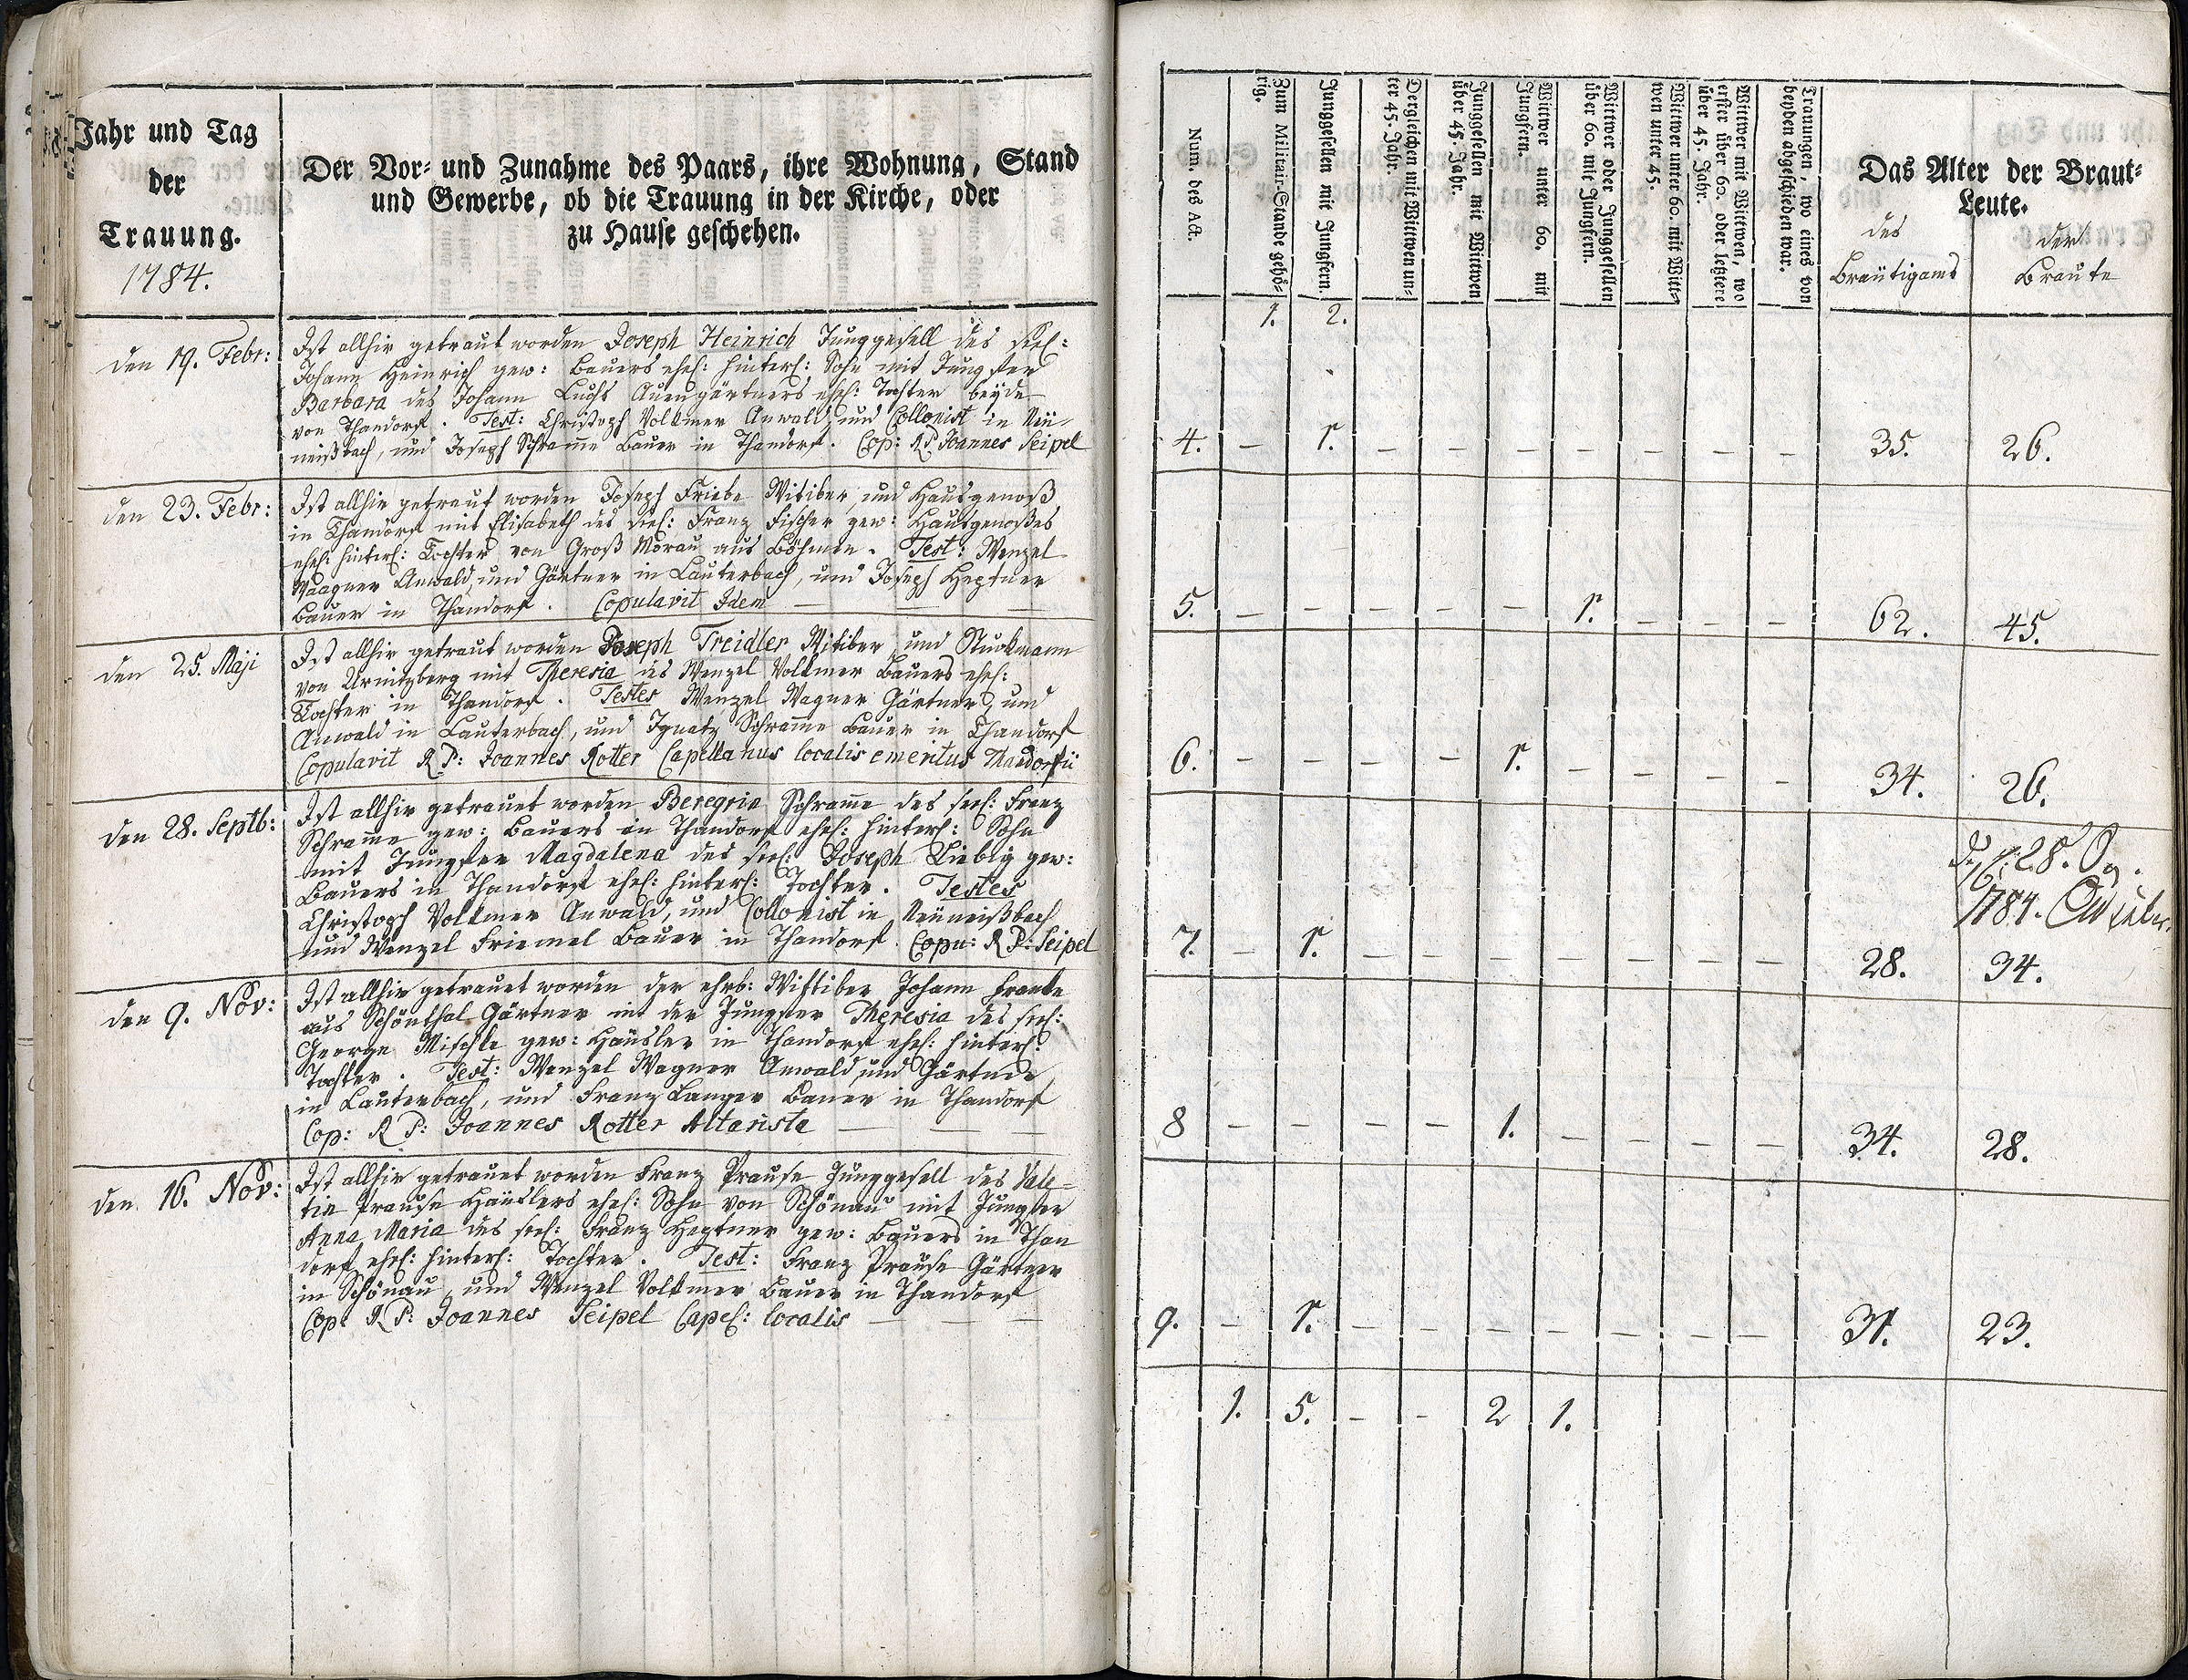 Jahr und Tag
der
Trauung.
1784.
Der Vor- und Zunahme des Paars, ihre Wohnung, Stand
und Gewerbe, ob die Trauung in der Kirche, oder
zu Hause geschehen.
den 19. Febr:
Ist allhir getraut worden Joseph Heinrich Junggesell des seel:
Johann Heinrich gew: Bauers ehel: hinterl: Sohn mit Jungfer
Barbara des Johann Luchs Auengärtners ehel: Tochter beyde
von Thandorf. Test: Christoph Volkmer Anwald, und Collonist in Neü-
neißbach, und Joseph Schrame Bauer in Thandorf. Cop: R.P. Joannes Seipel
den 23. Febr:
Ist allhir getraut worden Joseph Friebe Witiber, und Hausgenoß
in Thandorf mit Elisabeth des seel: Franz Fischer gew: Hausgenoßes
ehel: hinterl: Tochter von Groß Morau aus Böhmen. Test: Wenzel
Waagner Anwald, und Gärtner in Lauterbach, und Joseph Heptner
Bauer in Thandorf. Copulavit Idem
den 25. Maji
Ist allhir getraut worden Joseph Treidler Witiber, und Stuckmann
von Urnitzberg mit Theresia des Wenzel Volkmer Bauers ehel:
Tochter in Thandorf. Testes Wenzel Wagner Gärtner, und
Anwald in Lauterbach, und Ignatz Schrame Bauer in Thandorf
Copulavit R P: Joannes Rotter Capellanus localis emeritus Thandorfii
den 28. Septb:
Ist allhir getrauet worden Peregrin Schrame des seel: Franz
Schrame gew: Bauers in Thandorf ehel: hinterl: Sohn
mit Jungfer Magdalena des seel: Joseph Liebig gew:
Bauers in Thandorf ehel: hinterl: Tochter. Testes
Christoph Volkmer Anwald, und Collonist in Neüneißbach
und Wenzel Friemel Bauer in Thandorf. Copu: R P: Seipel
den 9. Nov:
Ist allhir getrauet worden der ehrb: Wittiber Johann Franke
aus Schönthal Gärtner mit der Jungfer Theresia des seel:
George Mischke gew: Häusler in Thandorf ehel: hinterl:
Tochter. Test: Wenzel Wagner Anwald, und Gärtner
in Lauterbach, und Franz Langer Bauer in Thandorf
Cop: R P: Joannes Rotter Altarista
den 16. Nov:
Ist allhir getrauet worden Franz Prause Junggesell des Vale-
tin Prause Häuslers ehel: Sohn von Schönau mit Jungfer
Anna Maria des seel: Franz Heptner gew: Bauers in Than
dorf ehel: hinterl: Tochter. Test: Franz Prause Gärtner
in Schönau, und Wenzel Volkmer Bauer in Thandorf
Cop: R P: Joannes Seipel Capel: localis
Num. des Act.
Zum Militair-Stande gehö-
rig.
Junggesellen mit Jungfern.
Dergleichen mit Wittwen un-
ter 45. Jahr.
Junggesellen mit Wittwen
über 45. Jahr.
Wittwer unter 60. mit
Jungfern.
Wittwer oder Junggesellen
über 60. mit Jungfern.
Wittwer unter 60. mit Witt-
wen unter 45.
Wittwer mit Wittwen, wo
erster über 60. oder letztere
über 45. Jahr.
Trauungen, wo eines von
beyden abgeschieden war.
Das Alter der Braut-
Leute.
des
Bräutigams
der
Braute
1. 2.
4. – 1. – – – – – – – 35. 26.
5. – – – – – 1. – – – 62. 45.
6. – – – – 1. – – – – 34. 26.
28.
1784.
7. – 1. – – – – – – – 28. 34.
8 – – – – 1. – – – – 34. 28.
9. – 1. – – – – – – – 31. 23.
1. 5. – – 2 1.